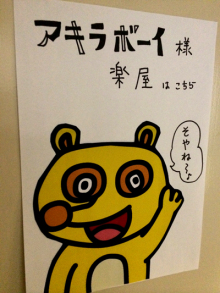 アキラボーイ 様
楽屋 は こちら
そやね〜♪